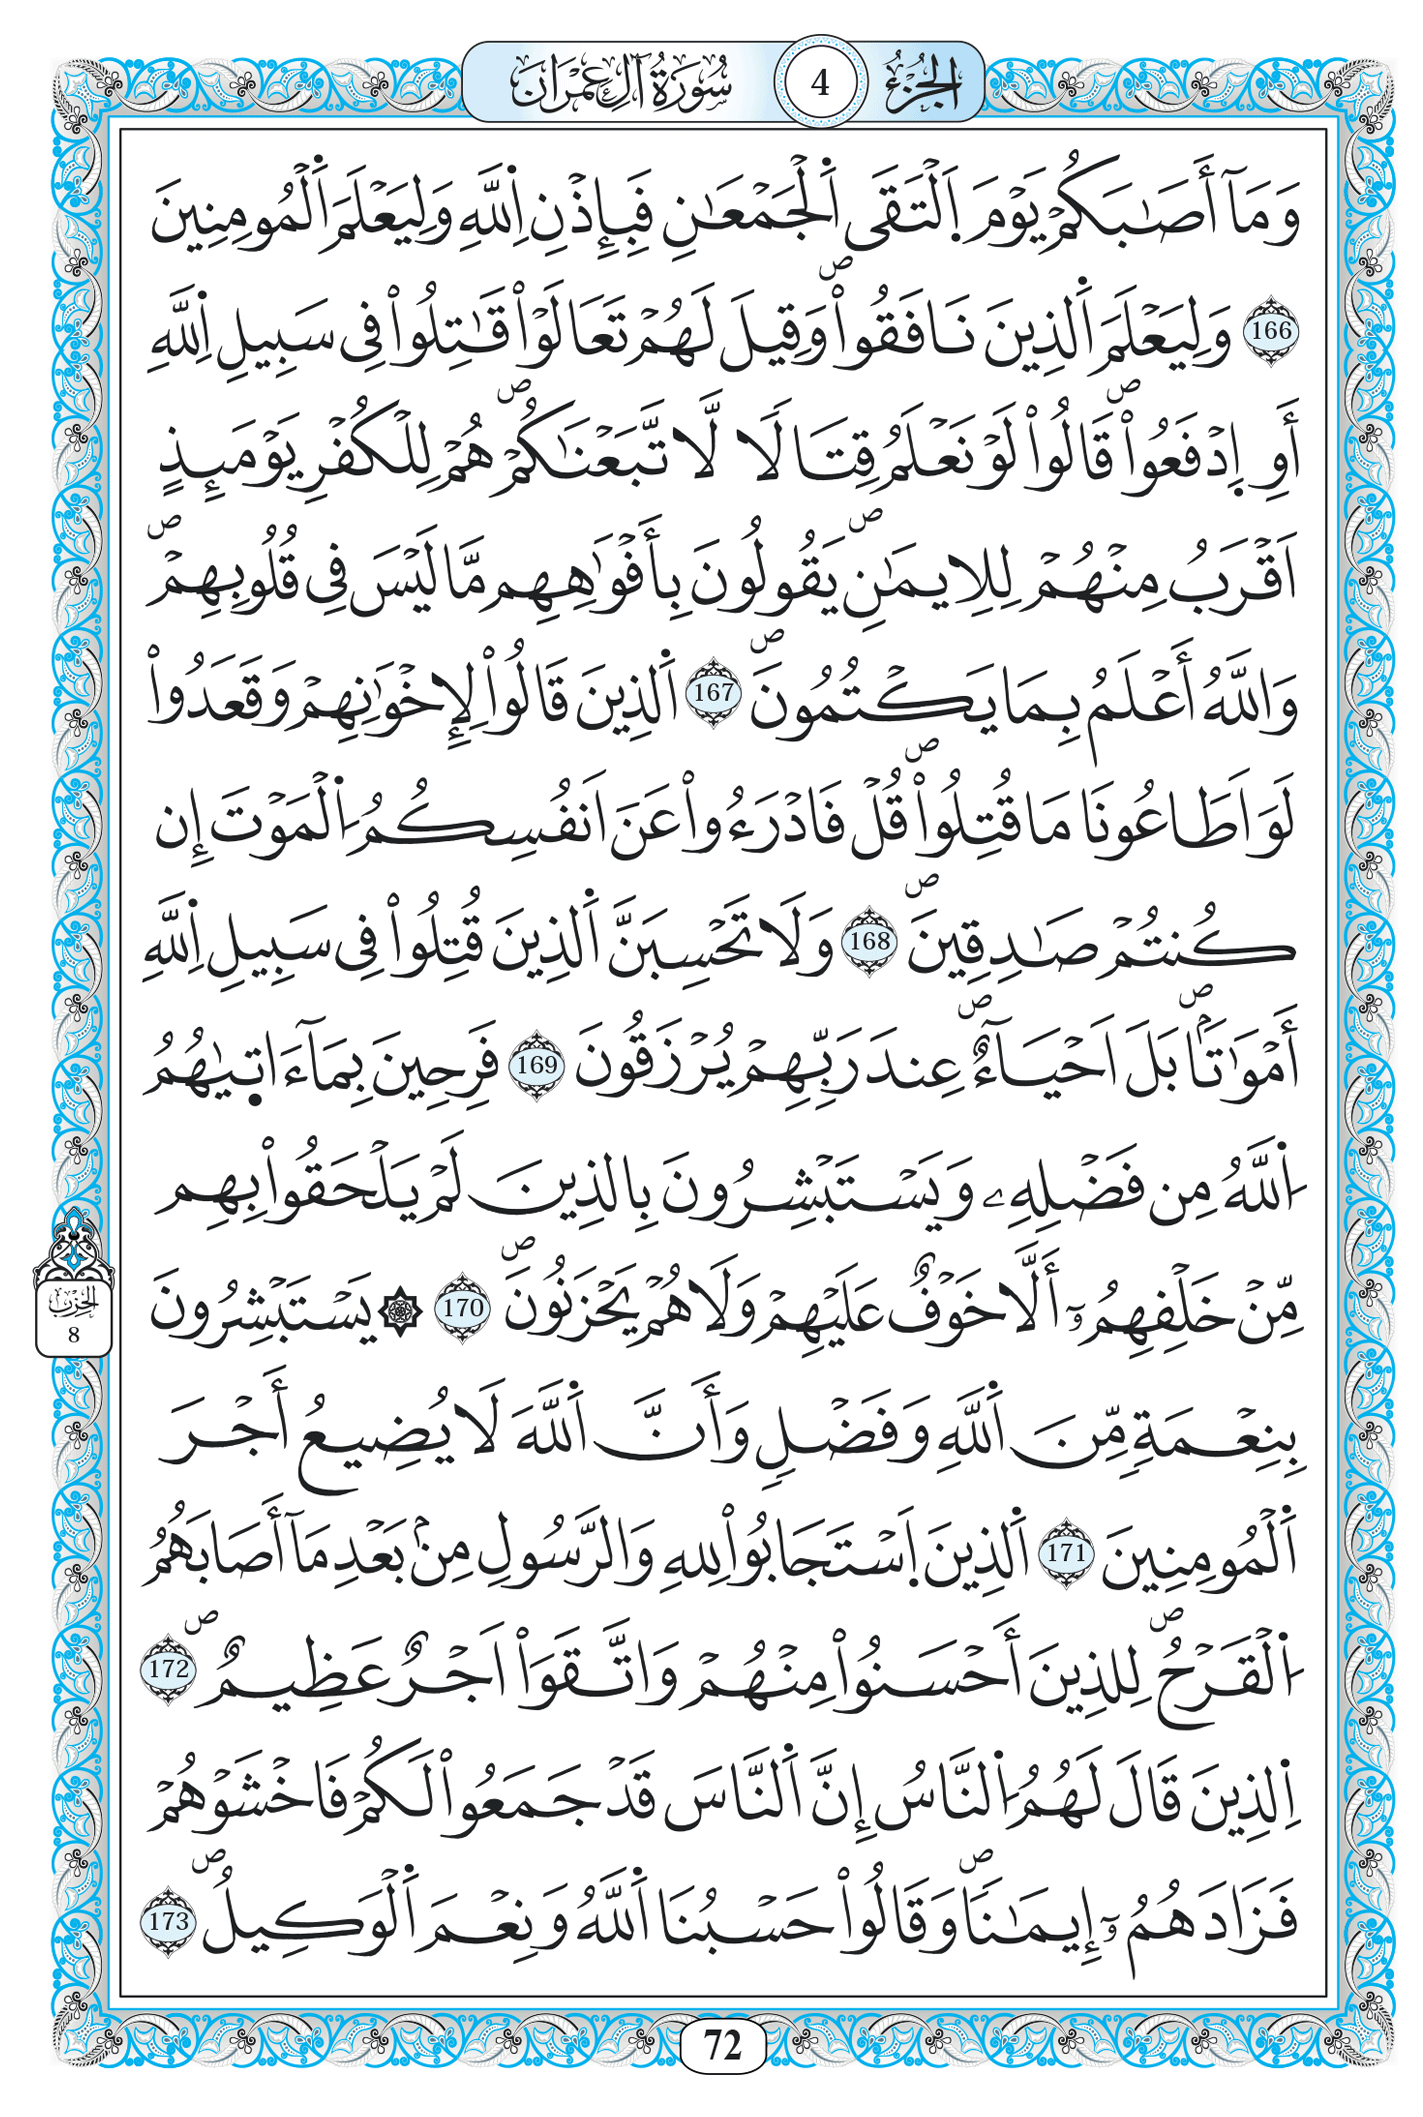 الجُزْءُ 4 سُورَةُ آلِ عِمْرَانَ
وَمَآ أَصَٰبَكُمْ يَوْمَ اَ۪لْتَقَى اَ۬لْجَمْعَٰنِ فَبِإِذْنِ اِ۬للَّهِ وَلِيَعْلَمَ اَ۬لْمُومِنِينَ
166 وَلِيَعْلَمَ اَ۬لذِينَ نَافَقُواْۖ وَقِيلَ لَهُمْ تَعَالَوْاْ قَٰتِلُواْ فِى سَبِيلِ اِ۬للَّهِ
أَوِ اِ۪دْفَعُواْۖ قَالُواْ لَوْ نَعْلَمُ قِتَالاٗ لَّا تَّبَعْنَٰكُمْۖ هُمْ لِلْكُفْرِ يَوْمَئِذٍ
اَقْرَبُ مِنْهُمْ لِلِايمَٰنِۖ يَقُولُونَ بِأَفْوَٰهِهِم مَّا لَيْسَ فِى قُلُوبِهِمْۖ
وَاللَّهُ أَعْلَمُ بِمَا يَكْتُمُونَۖ 167 اَ۬لذِينَ قَالُواْ لِإِخْوَٰنِهِمْ وَقَعَدُواْ
لَوَ اَطَاعُونَا مَا قُتِلُواْۖ قُلْ فَادْرَءُواْ عَنَ اَنفُسِكُمُ اُ۬لْمَوْتَ إِن
كُنتُمْ صَٰدِقِينَۖ 168 وَلَا تَحْسِبَنَّ اَ۬لذِينَ قُتِلُواْ فِى سَبِيلِ اِ۬للَّهِ
أَمْوَٰتاَۢۖ بَلَ اَحْيَآءٌۖ عِندَ رَبِّهِمْ يُرْزَقُونَ 169 فَرِحِينَ بِمَآ ءَات۪يٰهُمُ
اُ۬للَّهُ مِن فَضْلِهِۦ وَيَسْتَبْشِرُونَ بِالذِينَ لَمْ يَلْحَقُواْ بِهِم
مِّنْ خَلْفِهِمُۥٓ أَلَّا خَوْفٌ عَلَيْهِمْ وَلَا هُمْ يَحْزَنُونَۖ 170 ۞ يَسْتَبْشِرُونَ
بِنِعْمَةٍ مِّنَ اَ۬للَّهِ وَفَضْلٍ وَأَنَّ اَ۬للَّهَ لَا يُضِيعُ أَجْرَ
اَ۬لْمُومِنِينَ 171 اَ۬لذِينَ اَ۪سْتَجَابُواْ لِلهِ وَالرَّسُولِ مِنۢ بَعْدِ مَآ أَصَابَهُمُ
اُ۬لْقَرْحُۖ لِلذِينَ أَحْسَنُواْ مِنْهُمْ وَاتَّقَوَاْ اَجْرٌ عَظِيمٌۖ 172
اِ۬لذِينَ قَالَ لَهُمُ اُ۬لنَّاسُ إِنَّ اَ۬لنَّاسَ قَدْ جَمَعُواْ لَكُمْ فَاخْشَوْهُمْ
فَزَادَهُمُۥٓ إِيمَٰناٗۖ وَقَالُواْ حَسْبُنَا اَ۬للَّهُ وَنِعْمَ اَ۬لْوَكِيلُۖ 173
الحزب
8
72